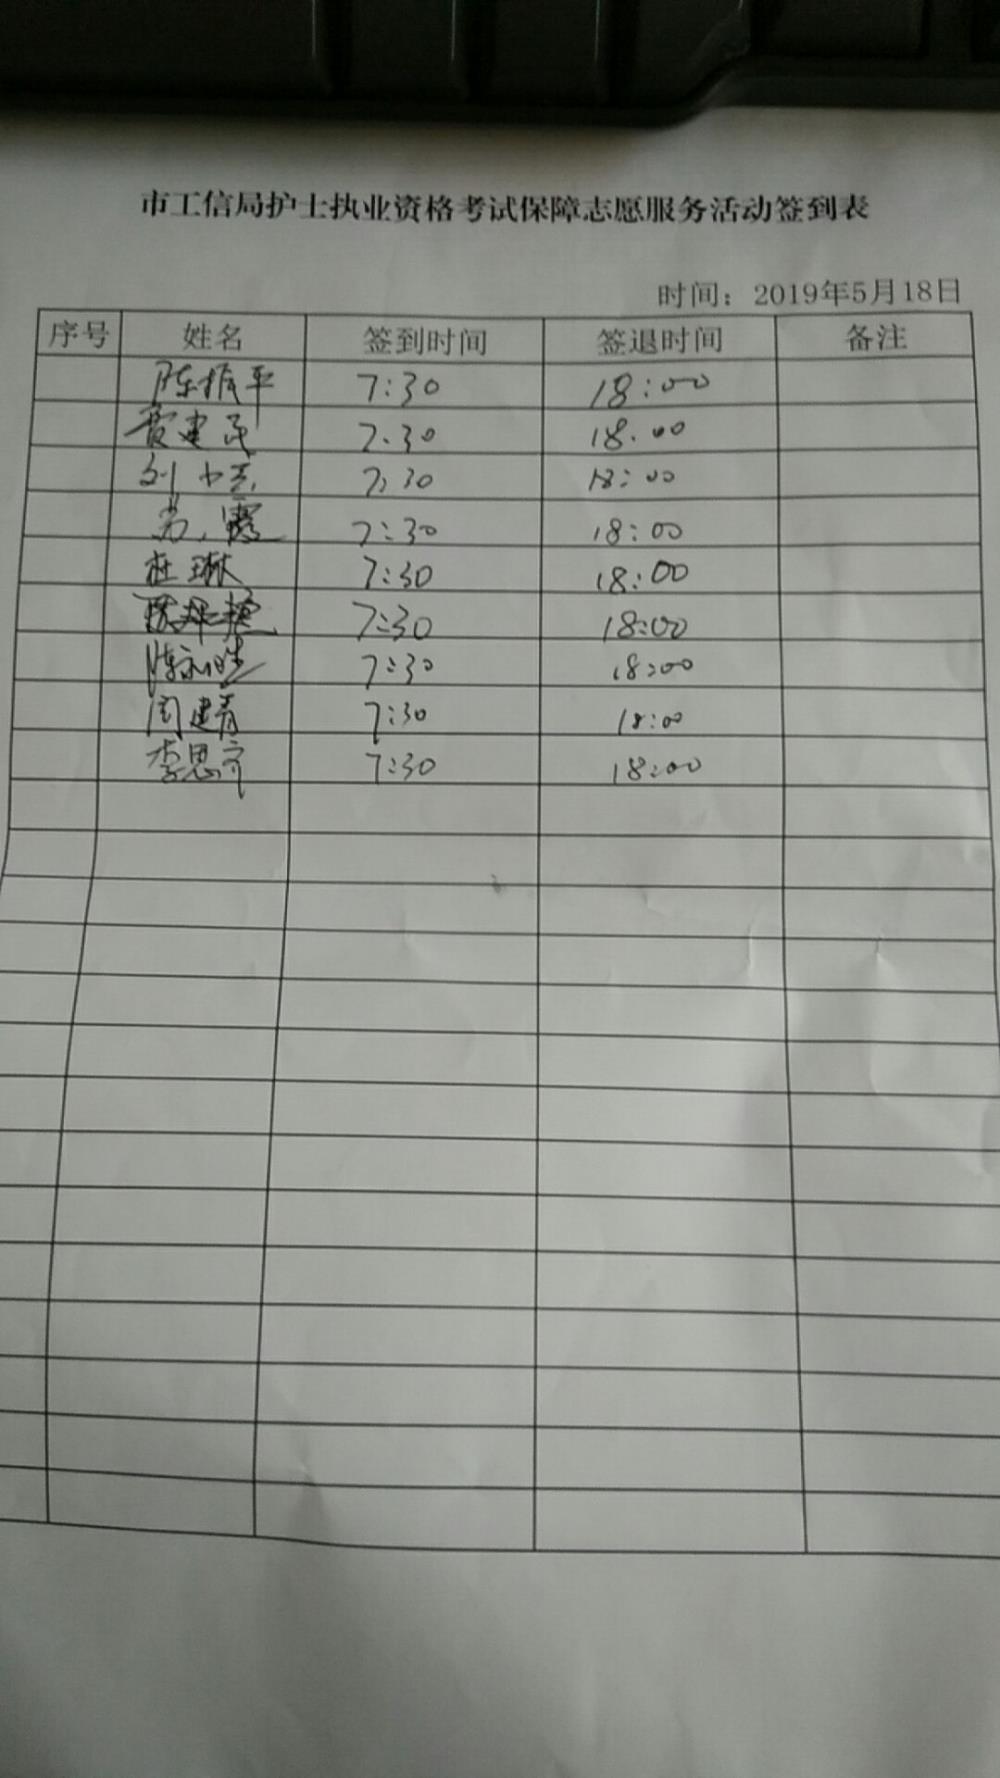 市工信局护士执业资格考试保障志愿服务活动签到表
时间：2019年5月18日
序号 姓名 签到时间 签退时间 备注
陈振平 7:30 18:00
建民 7:30 18:00
刘 7:30 18:00
露 7:30 18:00
杜琳 7:30 18:00
陈 7:30 18:00
陈 7:30 18:00
周建青 7:30 18:00
李思齐 7:30 18:00